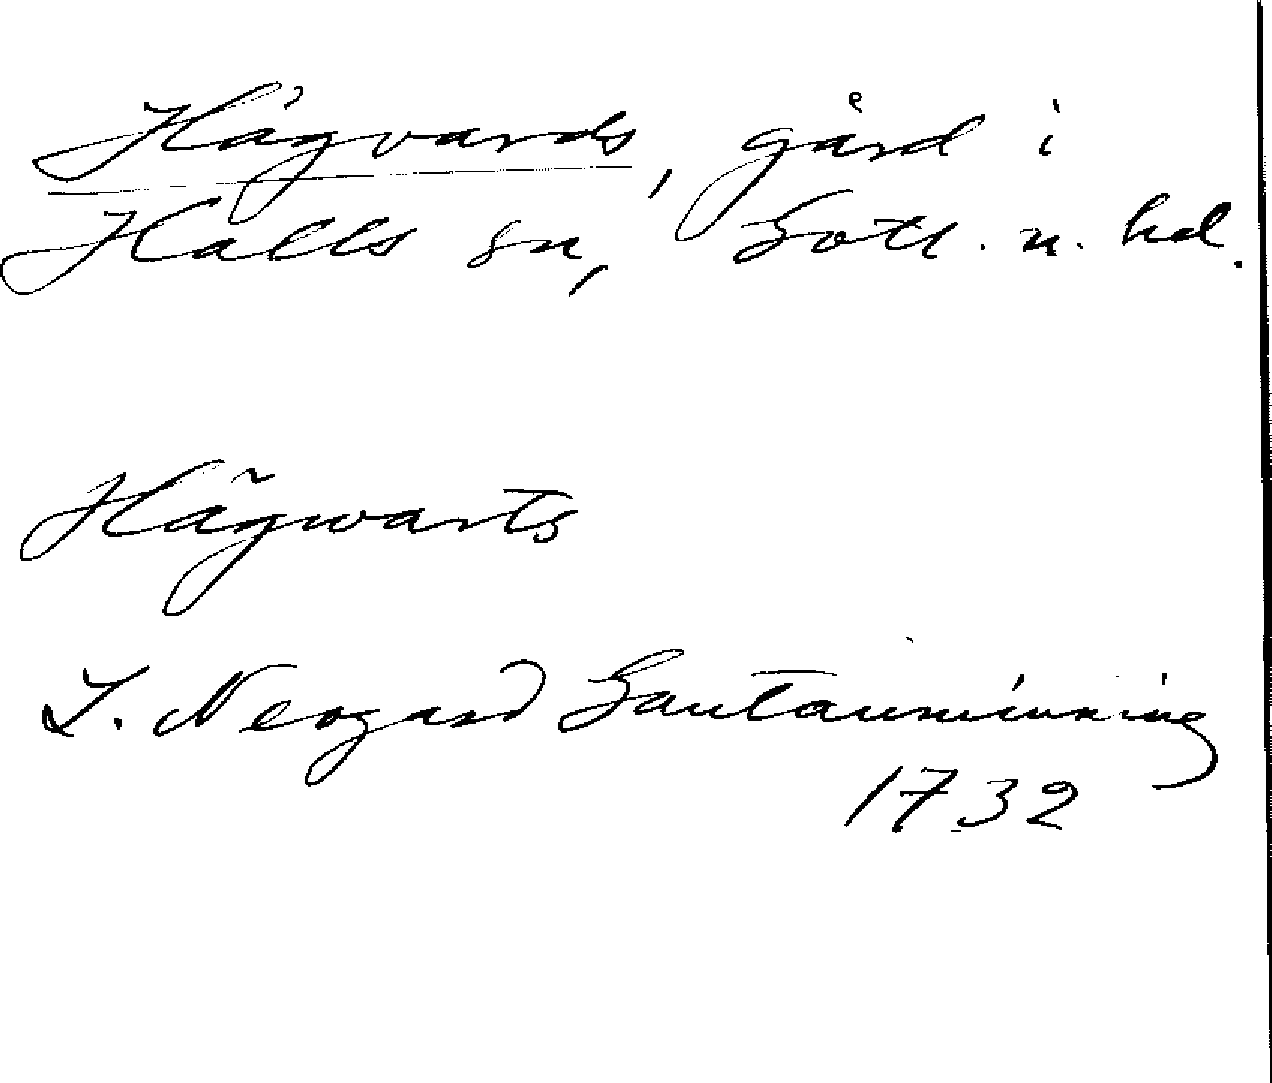 Hágvards, gård i
Halls sn, Gotl. n. hd.
Hãgwarts
J. Neogard Gautauminning
1732